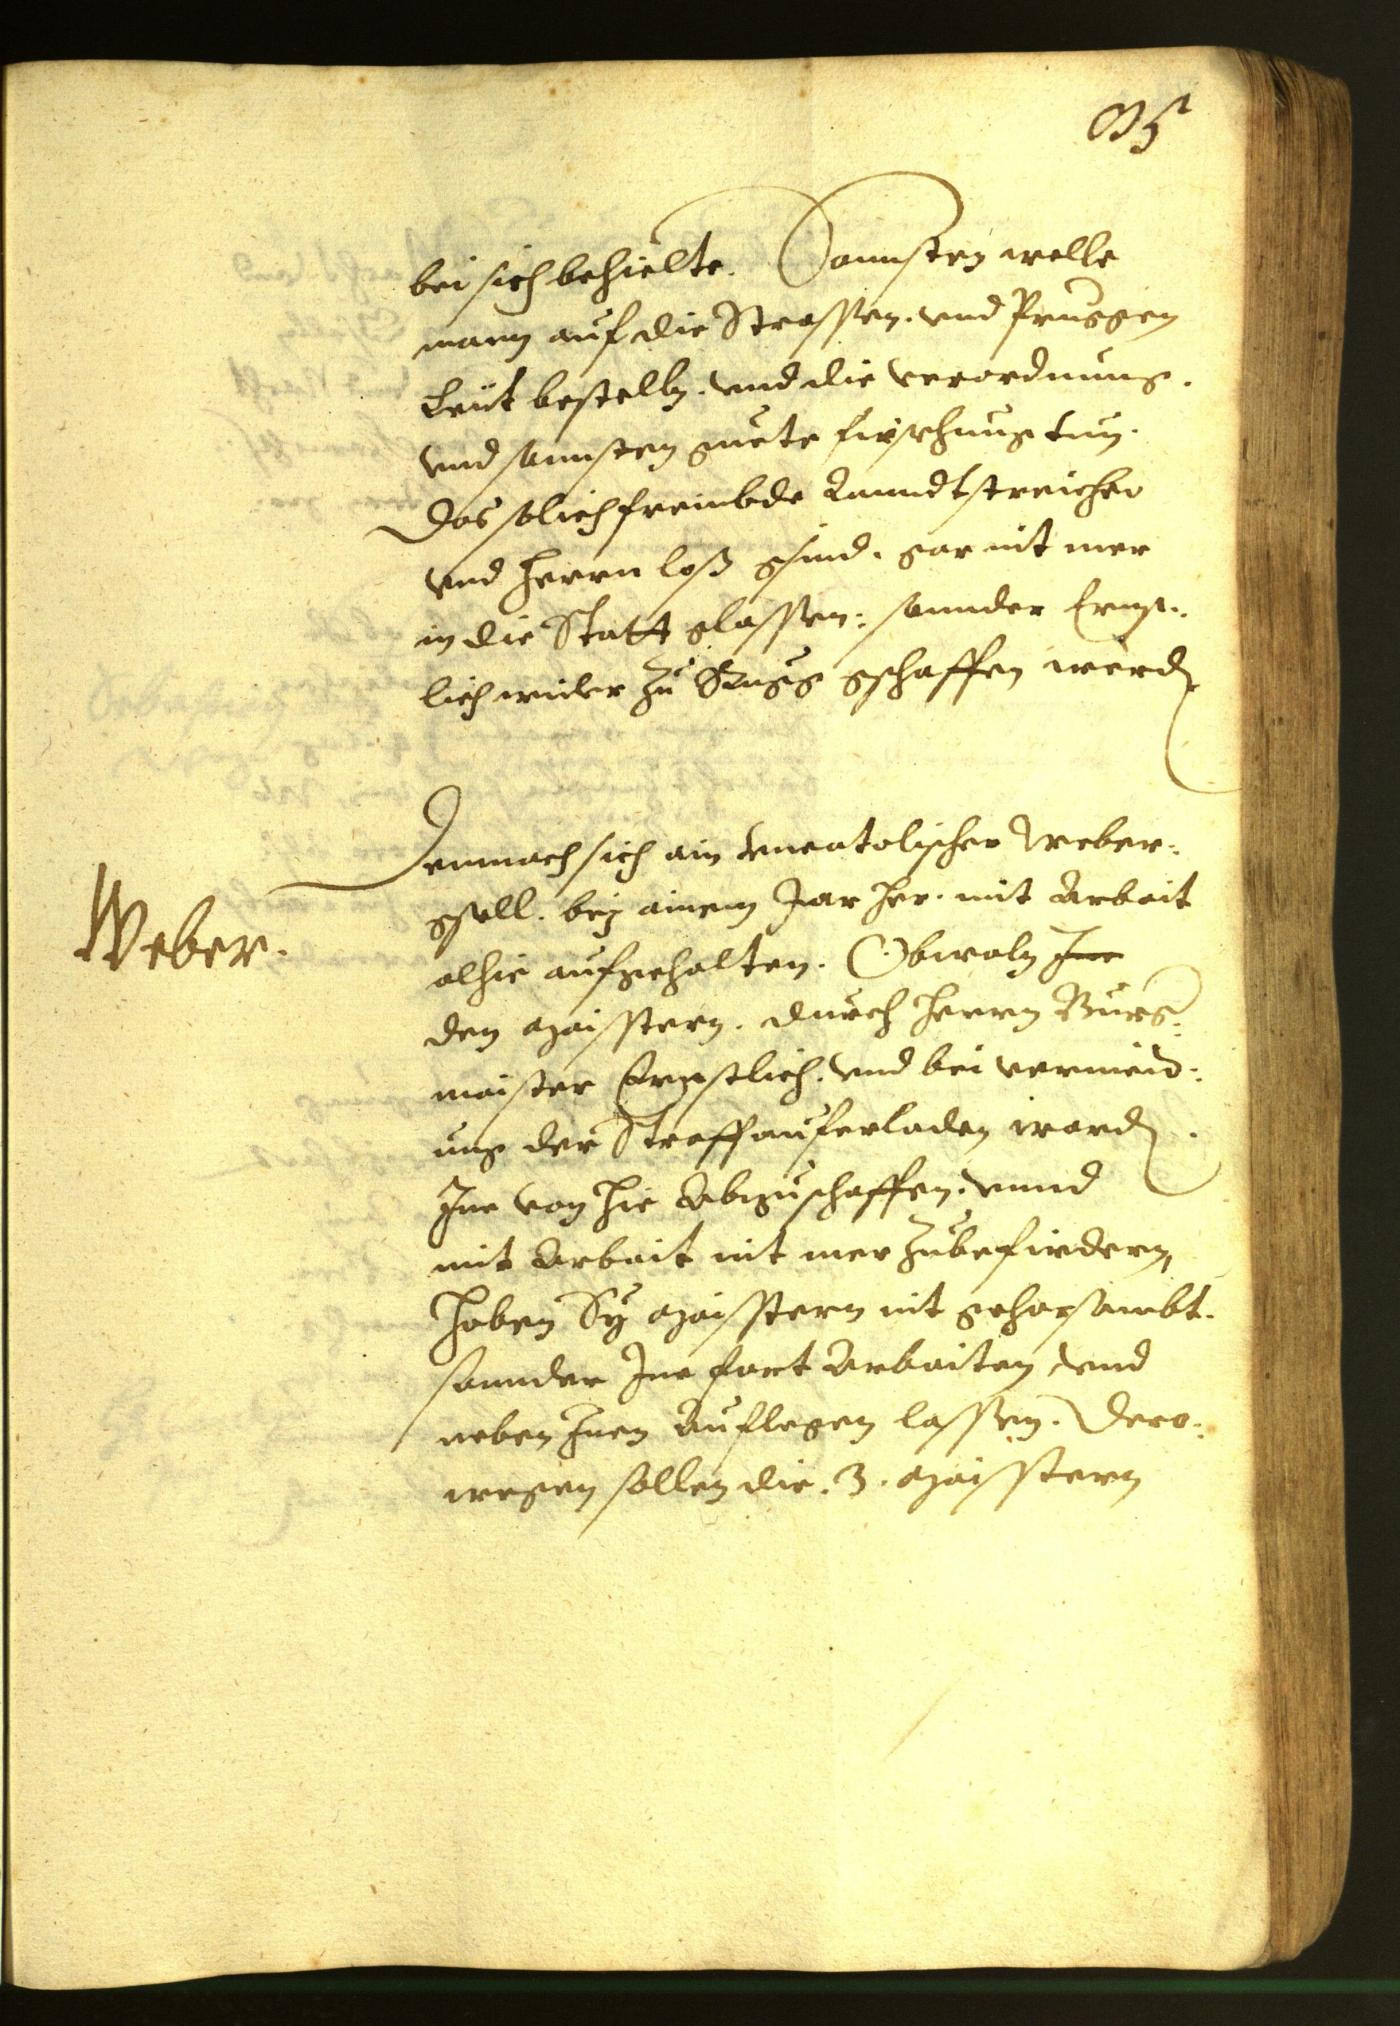 95
bei sich behielte. Sonnsten welle
mann auf die Strassen. vnd Pruggen
Leüt bestelln. vnd die verordnung.
vnd sonnsten guete fürsehung tun.
Das solich frembde Lanndtstreicher
vnd herrn loß gsind. gar nit mer
in die Statt glassen: sonnder Ernst:
lich wider zu Rugg gschaffen werden
Demnach sich ain vncatolischer Weber:
Weber.
gsell. bey ainem Jar her. mit Arbait
alhie aufgehalten. Obwoln Ine
den Maisstern. durch herrn Burg:
maister Ernstlich. vnd bei vermeid:
ung der Straff auferladen worden.
Ine von hie Abzuschaffen. vnnd
mit Arbait nit mer zubefirdern,
Haben Sy Maisstern nit gehorsambt.
sonnder Ine fort Arbaiten vnd
neben Inen Auflegen lassen. Dero:
wegen sollen die .3. Maisstern